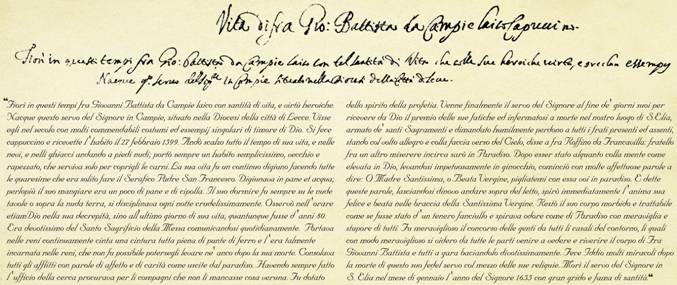 Vita di fra Gio: Battista da Campie laico Capuccino.
Fiorì in questi tempi fra Gio: Battista da Campie laico con santità di Vita che colle sue heroiche virtù, e essempy
Nacque servo del in Campie situato nella Diocesi della Città di Lecce.
"Fiorì in questi tempi fra Giovanni Battista da Campie laico con santità di vita, e virtù heroiche.
Nacque questo servo del Signore in Campie, situato nella Diocesi della città di Lecce. Visse
egli nel secolo con molti commendabili costumi ed essempij singolari di timore di Dio. Si fece
cappuccino e ricevette l'habito il 27 febbraio 1599. Andò scalzo tutto il tempo di sua vita, e nelle
nevi, e nelli ghiacci andando a piedi nudi; portò sempre un habito semplicissimo, vecchio e
rapezzato, che serviva solo per coprirli le carni. La sua vita fu un continuo digiuno facendo tutte
le quaresime che era solito fare il Serafico Padre San Francesco. Digiunava in pane ed acqua;
perlopiù il suo mangiare era un poco di pane e di cipolla. Il suo dormire fu sempre su le nude
tavole o sopra la nuda terra, si disciplinava ogni notte crudelissimamente. Osservò nell'orare
etiamDio nella sua decrepità, sino all'ultimo giorno di sua vita, quantunque fusse d'anni 80.
Era devotissimo del Santo Sagrificio della Messa comunicandosi quotidianamente. Portava
nelle reni continuamente cinta una cintura tutta piena di punte di ferro e l'era talmente
incarnata nelle reni, che non fu possibile potersegli levare ne' anco dopo la sua morte. Consolava
tutti gli afflitti con parole di affetto e di carità come uscite dal paradiso. Havendo sempre fatto
l'ufficio della cerca procurava per li compagni che non li mancasse cosa veruna. Fu dotato
dello spirito della profetia. Venne finalmente il servo del Signore al fine de' giorni suoi per
ricevere da Dio il premio delle sue fatiche ed infermatosi a morte nel nostro luogo di S.Elia,
armato de' santi Sagramenti e dimandato humilmente perdono a tutti i frati presenti ed assenti,
stando col volto allegro e colla faccia verso del Cielo, disse a fra Ruffino da Francavilla: fratello
fra un altro miserere sicura sarò in Paradiso. Dopo esser stato alquanto colla mente come
elevata in Dio, levandosi impetuosamente in ginocchio, cominciò con molte affettuose parole a
dire: O Madre Santissima, o Beata Vergine, pigliatemi con essa voi in paradiso. E dette
queste parole, lasciandosi dinovo andare sopra del letto, spirò immediatamente l'anima sua
felice e beata nelle braccia della Santissima Vergine. Restò il suo corpo morbido e trattabile
come se fusse stato d'un tenero fanciullo e spirava odore come di Paradiso con meraviglia e
stupore di tutti. Fu meraviglioso il concorso delle genti da tutti li casali del contorno, li quali
con modo meraviglioso si videro da tutte le parti venire a vedere e riverire il corpo di Fra
Giovanni Battista e tutti a gara baciandolo divotissimamente. Fece Iddio molti miracoli dopo
la morte di questo suo fedel servo col mezzo delle sue reliquie. Morì il servo del Signore in
S. Elia nel mese di gennaio l'anno del Signore 1633 con gran grido e fama di santità."